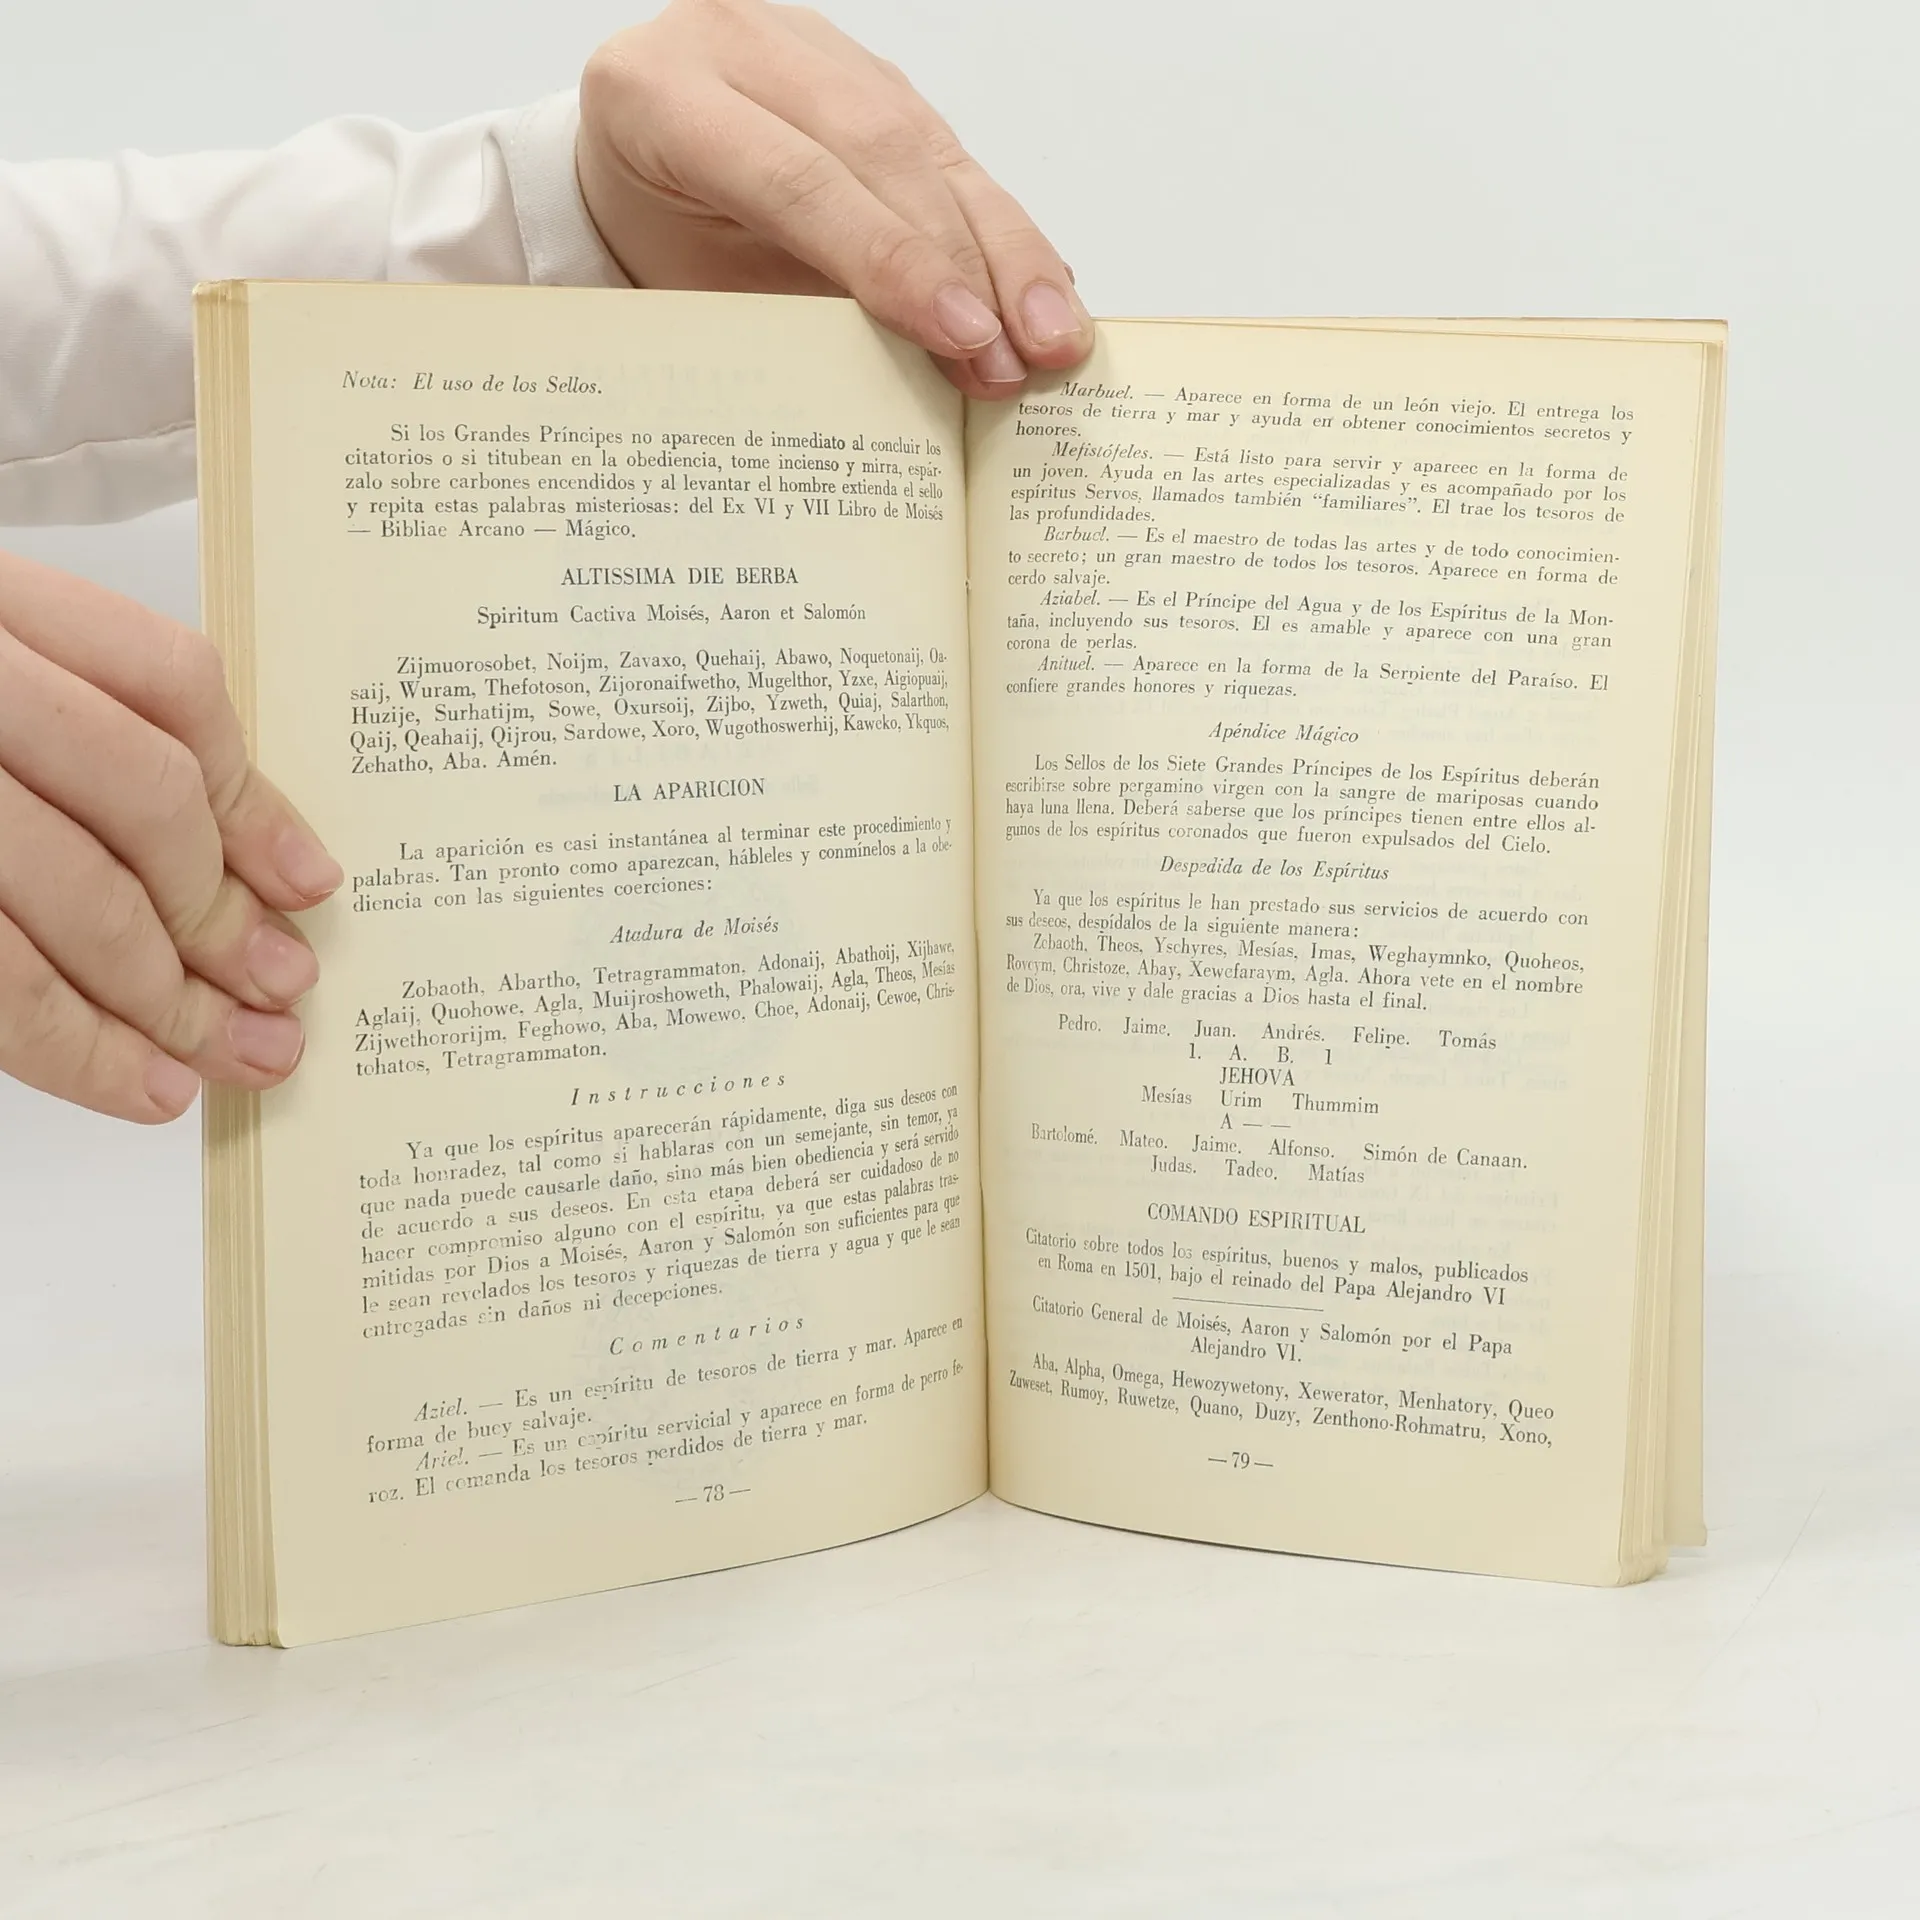 Nota: El uso de los Sellos.
Si los Grandes Príncipes no aparecen de inmediato al concluir los
citatorios o si titubean en la obediencia, tome incienso y mirra, espár-
zalo sobre carbones encendidos y al levantar el hombre extienda el sello
y repita estas palabras misteriosas: del Ex VI y VII Libro de Moisés
— Bibliae Arcano — Mágico.
ALTISSIMA DIE BERBA
Spiritum Cactiva Moisés, Aaron et Salomón
Zijmuorosobet, Noijm, Zavaxo, Quehaij, Abawo, Noquetonaij, Oa-
saij, Wuram, Thefotoson, Zijoronaifwetho, Mugelthor, Yzxe, Aigiopuaij,
Huzije, Surhatijm, Sowe, Oxursoij, Zijbo, Yzweth, Quiaj, Salarthon,
Qaij, Qeahaij, Qijrou, Sardowe, Xoro, Wugothoswerhij, Kaweko, Ykquos,
Zehatho, Aba. Amén.
LA APARICION
La aparición es casi instantánea al terminar este procedimiento y
palabras. Tan pronto como aparezcan, hábleles y conmínelos a la obe-
diencia con las siguientes coerciones:
Atadura de Moisés
Zobaoth, Abartho, Tetragrammaton, Adonaij, Abathoij, Xijhawe,
Aglaij, Quohowe, Agla, Muijroshoweth, Phalowaij, Agla, Theos, Mesías
Zijwethororijm, Feghowo, Aba, Mowewo, Choe, Adonaij, Cewoe, Chris-
tohatos, Tetragrammaton.
Instrucciones
Ya que los espíritus aparecerán rápidamente, diga sus deseos con
toda honradez, tal como si hablaras con un semejante, sin temor, ya
que nada puede causarle daño, sino más bien obediencia y será servido
de acuerdo a sus deseos. En esta etapa deberá ser cuidadoso de no
hacer compromiso alguno con el espíritu, ya que estas palabras tras-
mitidas por Dios a Moisés, Aaron y Salomón son suficientes para que
le sean revelados los tesoros y riquezas de tierra y agua y que le sean
entregadas sin daños ni decepciones.
Comentarios
Aziel. — Es un espíritu de tesoros de tierra y mar. Aparece en
forma de buey salvaje.
Ariel. — Es un espíritu servicial y aparece en forma de perro fe-
roz. El comanda los tesoros perdidos de tierra y mar.
— 78 —
Marbuel. — Aparece en forma de un león viejo. El entrega los
tesoros de tierra y mar y ayuda en obtener conocimientos secretos y
honores.
Mefistófeles. — Está listo para servir y aparece en la forma de
un joven. Ayuda en las artes especializadas y es acompañado por los
espíritus Servos, llamados también "familiares". El trae los tesoros de
las profundidades.
Barbuel. — Es el maestro de todas las artes y de todo conocimien-
to secreto; un gran maestro de todos los tesoros. Aparece en forma de
cerdo salvaje.
Aziabel. — Es el Príncipe del Agua y de los Espíritus de la Mon-
taña, incluyendo sus tesoros. El es amable y aparece con una gran
corona de perlas.
Anituel. — Aparece en la forma de la Serpiente del Paraíso. El
confiere grandes honores y riquezas.
Apéndice Mágico
Los Sellos de los Siete Grandes Príncipes de los Espíritus deberán
escribirse sobre pergamino virgen con la sangre de mariposas cuando
haya luna llena. Deberá saberse que los príncipes tienen entre ellos al-
gunos de los espíritus coronados que fueron expulsados del Cielo.
Despedida de los Espíritus
Ya que los espíritus le han prestado sus servicios de acuerdo con
sus deseos, despídalos de la siguiente manera:
Zebaoth, Theos, Yschyres, Mesías, Imas, Weghaymnko, Quoheos,
Roveym, Christoze, Abay, Xewefaraym, Agla. Ahora vete en el nombre
de Dios, ora, vive y dale gracias a Dios hasta el final.
Pedro. Jaime. Juan. Andrés. Felipe. Tomás
1. A. B. 1
JEHOVA
Mesías Urim Thummim
A — —
Bartolomé. Mateo. Jaime. Alfonso. Simón de Canaan.
Judas. Tadeo. Matías
COMANDO ESPIRITUAL
Citatorio sobre todos los espíritus, buenos y malos, publicados
en Roma en 1501, bajo el reinado del Papa Alejandro VI
Citatorio General de Moisés, Aaron y Salomón por el Papa
Alejandro VI.
Aba, Alpha, Omega, Hewozywetony, Xewerator, Menhatory, Queo
Zuweset, Rumoy, Ruwetze, Quano, Duzy, Zenthono-Rohmatru, Xono,
— 79 —